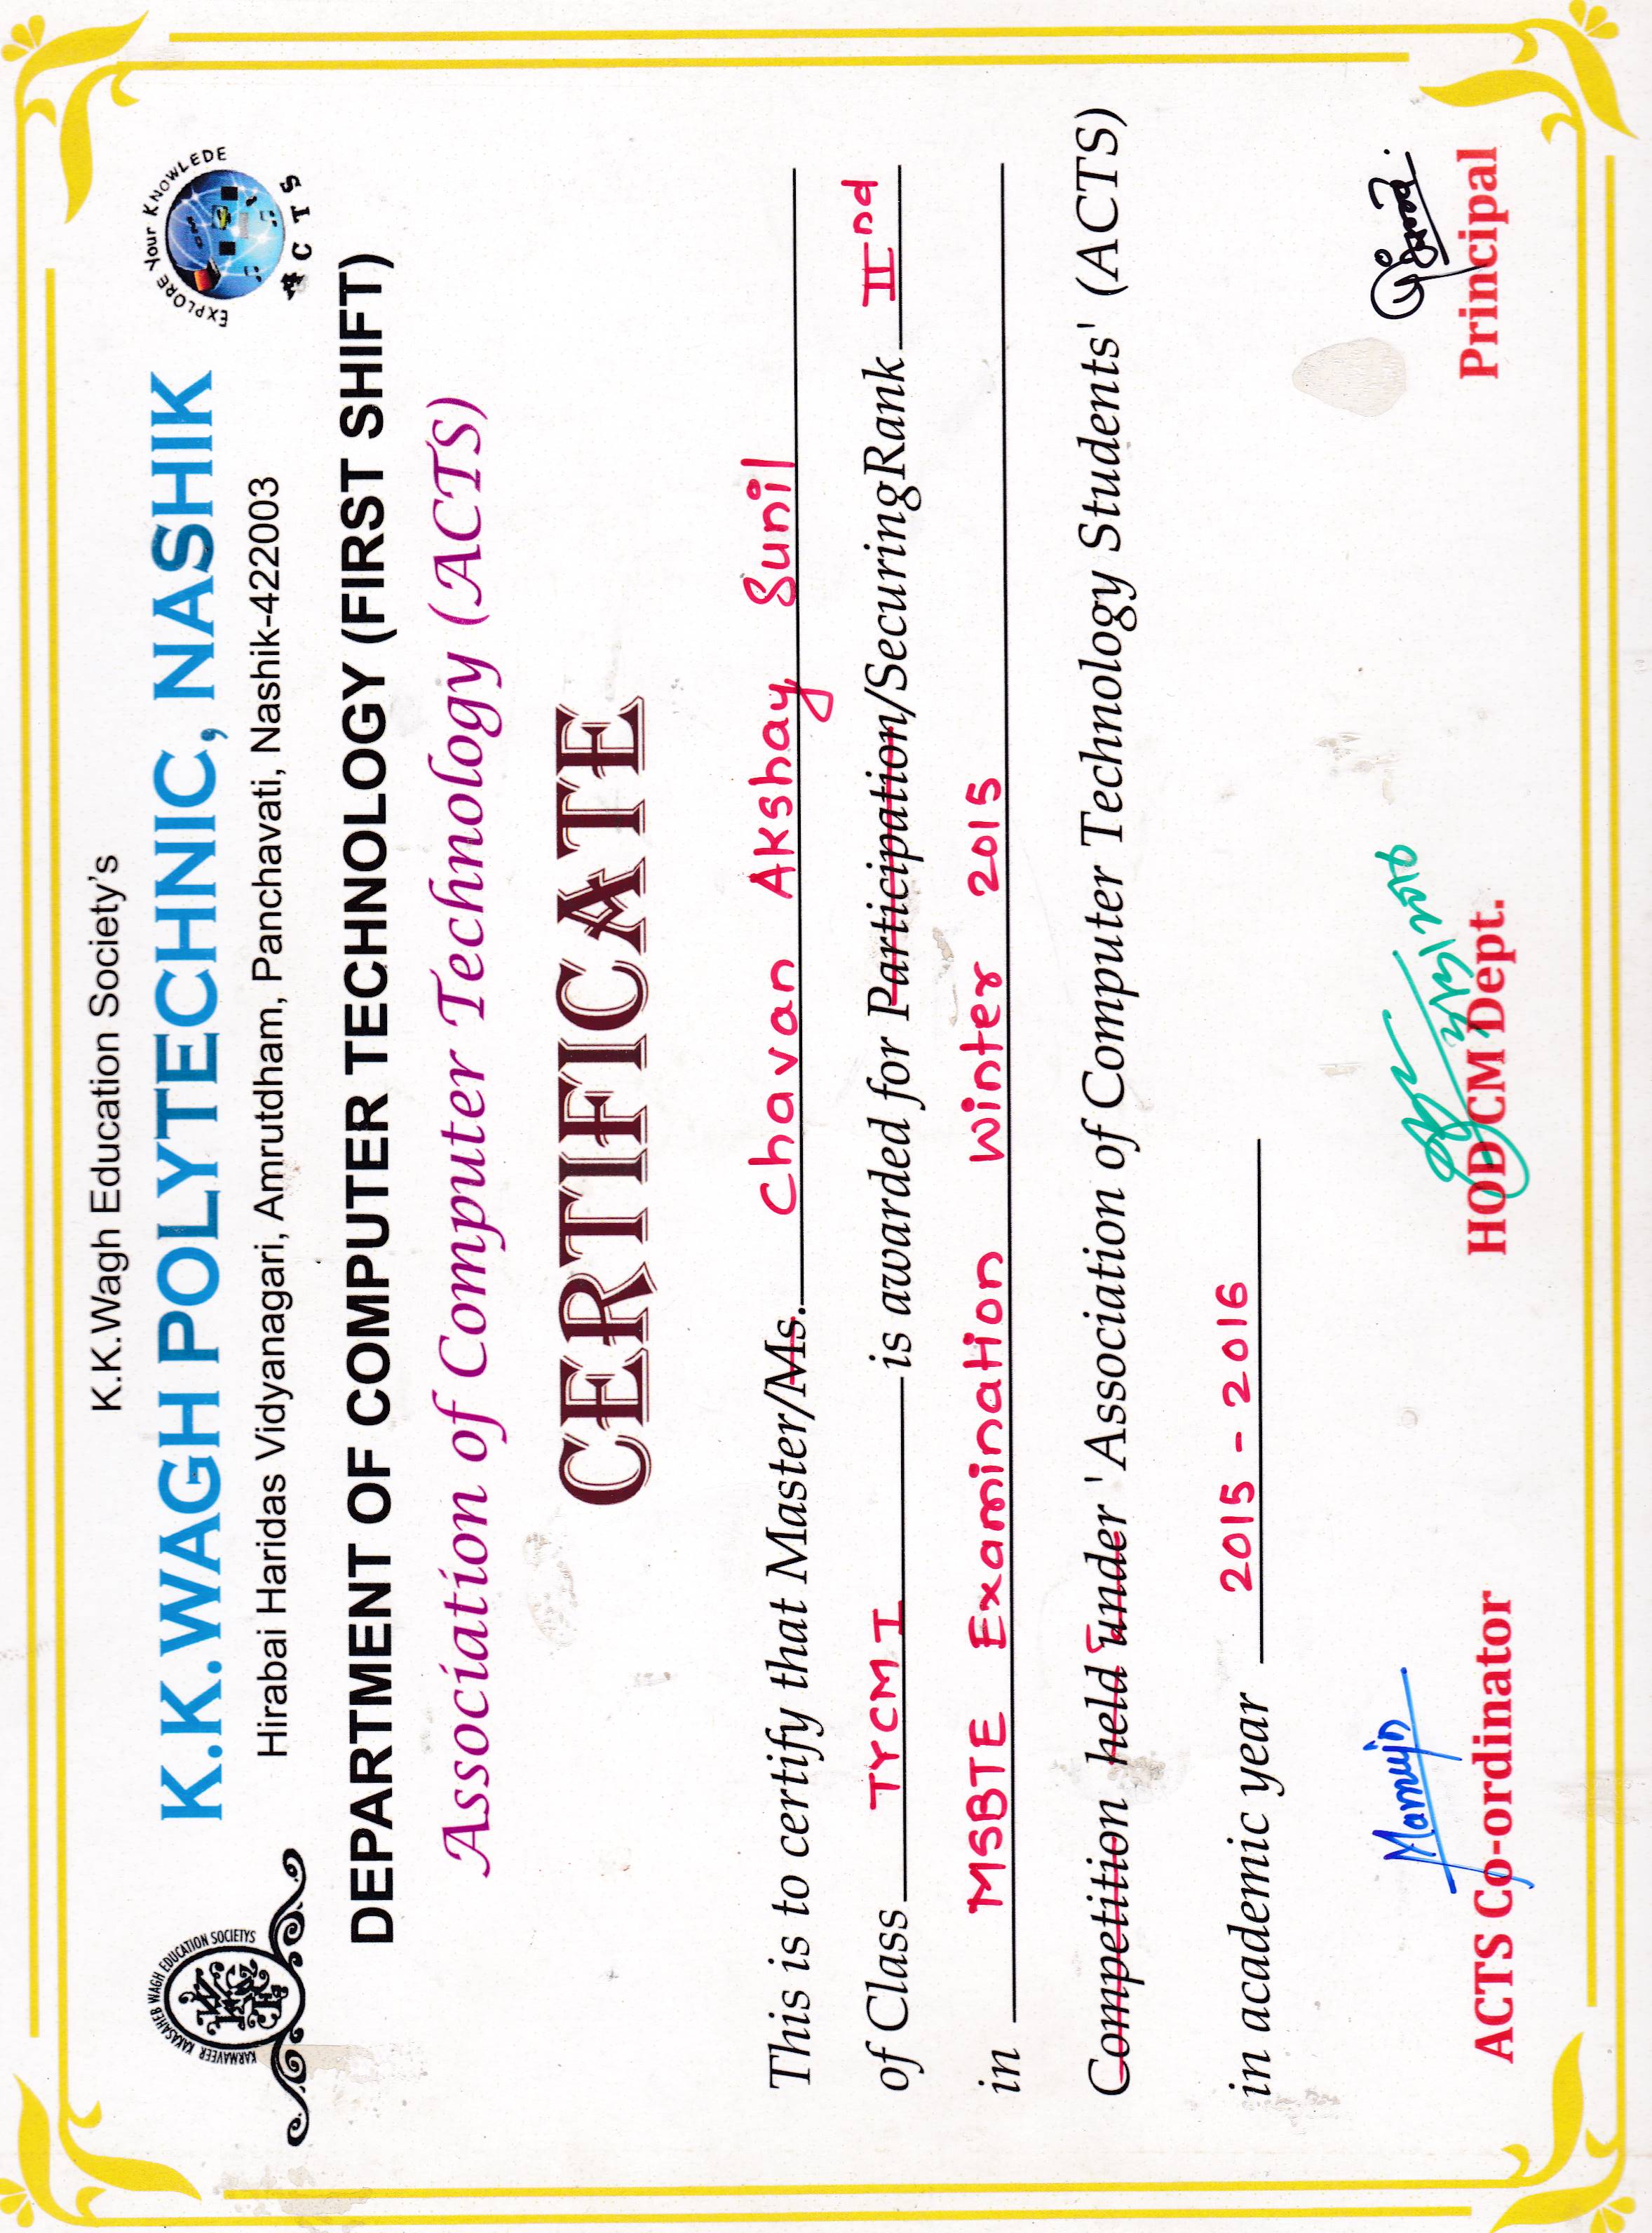 K.K.Wagh Education Society's
K.K.WAGH POLYTECHNIC, NASHIK
Hirabai Haridas Vidyanagari, Amrutdham, Panchavati, Nashik-422003
KARMAVEER KAKASAHEB WAGH EDUCATION SOCIETYS
EXPLORE Your KNOWLEDE
ACTS
DEPARTMENT OF COMPUTER TECHNOLOGY (FIRST SHIFT)
Association of Computer Technology (ACTS)
CERTIFICATE
This is to certify that Master/Ms. Chavan Akshay Sunil
of Class TYCM I is awarded for Participation/SecuringRank IInd
in MSBTE Examination Winter 2015
Competition held under 'Association of Computer Technology Students' (ACTS)
in academic year 2015 - 2016
ACTS Co-ordinator HOD CM Dept. Principal